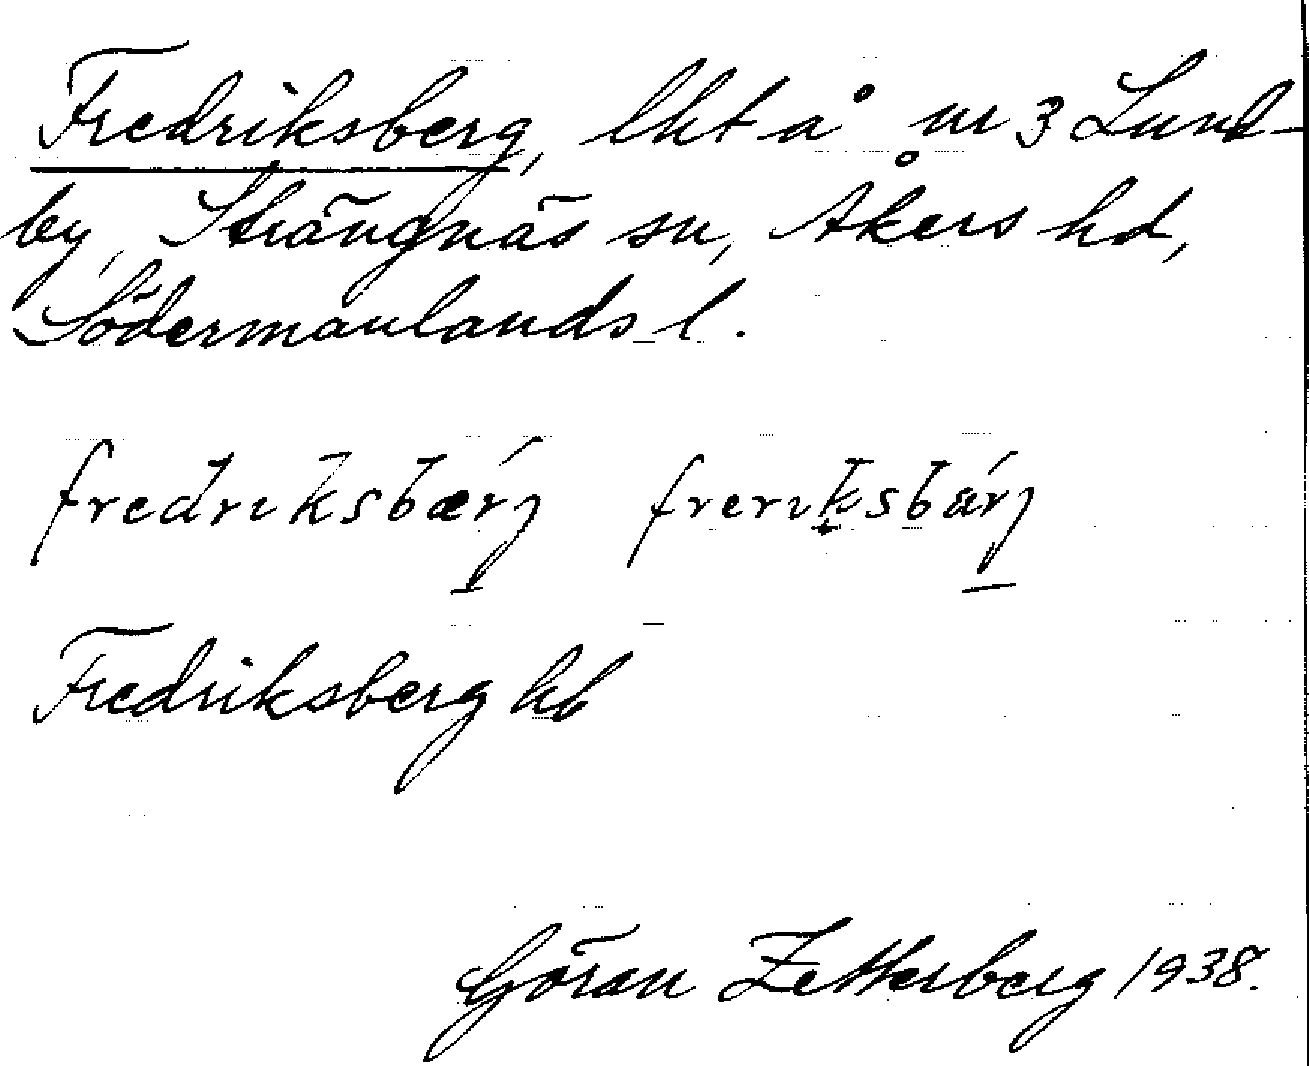 Fredriksberg, lht å nr 3 Lund-
by, Strängnäs sn, Åkers hd,
Södermanlands l.
fredriksbærj freriksbärj
Fredriksberg kb
Göran Zetterberg 1938.